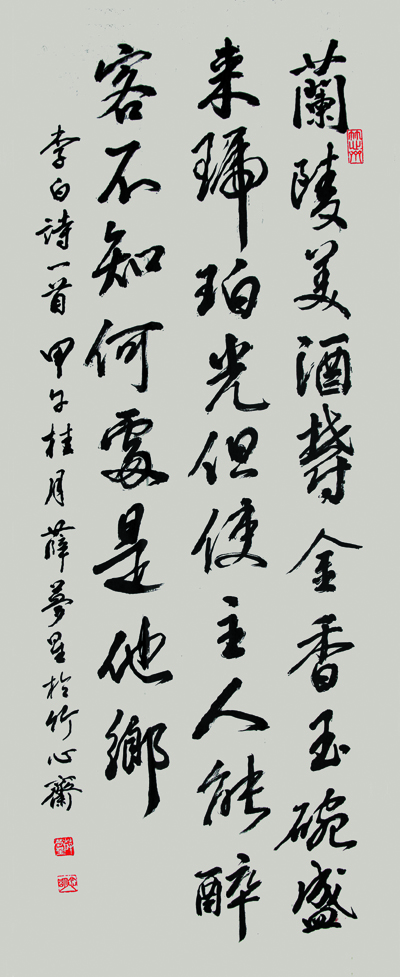 蘭陵美酒欝金香玉碗盛
来琥珀光但使主人能醉
客不知何處是他鄉
李白詩一首甲午桂月薛夢星於竹心齋